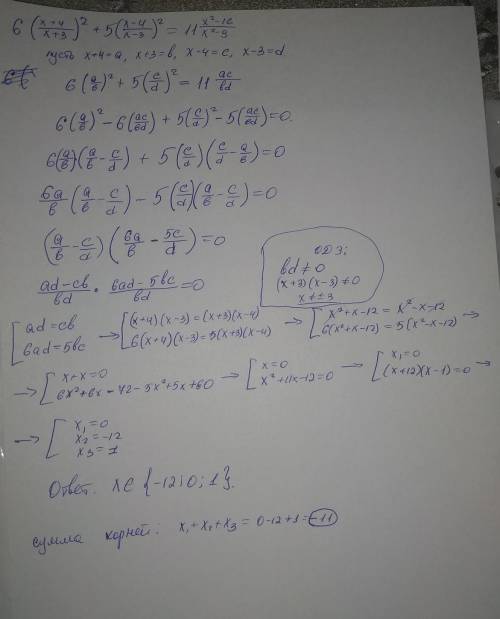 6 (x+4/x+3)² + 5 (x-4/x-3)² = 11 x²-16/x²-9
пусть x+4=a, x+3=b, x-4=c, x-3=d
6(a/b)² + 5(c/d)² = 11 ac/bd
6(a/b)² - 6(ac/bd) + 5(c/d)² - 5(ac/bd) = 0.
6(a/b)(a/b - c/d) + 5(c/d)(c/d - a/b) = 0
6a/b (a/b - c/d) - 5(c/d)(a/b - c/d) = 0
(a/b - c/d)(6a/b - 5c/d) = 0
ОДЗ:
bd ≠ 0
(x+3)(x-3) ≠ 0
x ≠ ±3
ad-cb/bd · 6ad-5bc/bd = 0
[ad=cb → [(x+4)(x-3)=(x+3)(x-4) → [x²+x-12 = x²-x-12 →
6ad=5bc 6(x+4)(x-3)=5(x+3)(x-4) 6(x²+x-12) = 5(x²-x-12)
→ [x+x=0 → [x=0 → [x₁=0
6x²+6x-72-5x²+5x+60 x²+11x-12=0 (x+12)(x-1)=0 →
→ [x₁=0
x₂=-12
x₃=1
Ответ: x∈{-12;0;1}.
сумма корней: x₁+x₂+x₃ = 0-12+1=-11